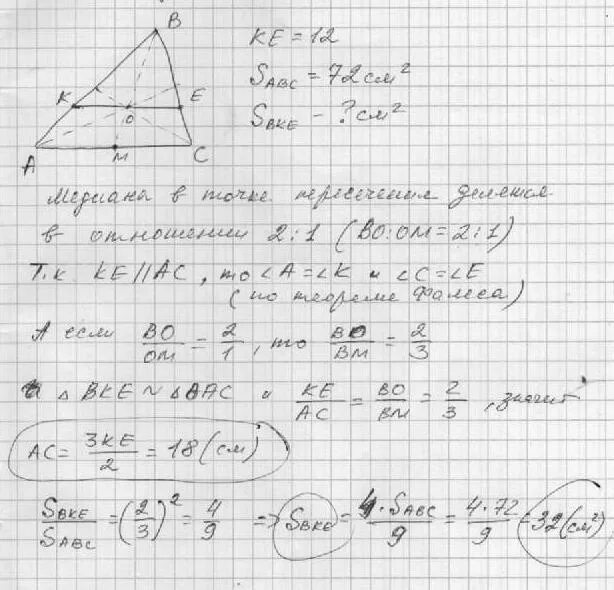 B
K E
O
A M C
KE = 12
S_ABC = 72 см²
S_BKE - ? см²
Медианы в точке пересечения делятся
в отношении 2:1 (BO:OM = 2:1)
Т.к KE || AC, то ∠A = ∠K и ∠C = ∠E
(по теореме Фалеса)
А если BO/OM = 2/1, то BO/BM = 2/3
△BKE ~ △BAC и KE/AC = BO/BM = 2/3, значит
AC = 3KE/2 = 18 (см)
S_BKE/S_ABC = (2/3)² = 4/9 => S_BKE = 4·S_ABC/9 = 4·72/9 = 32 (см²)